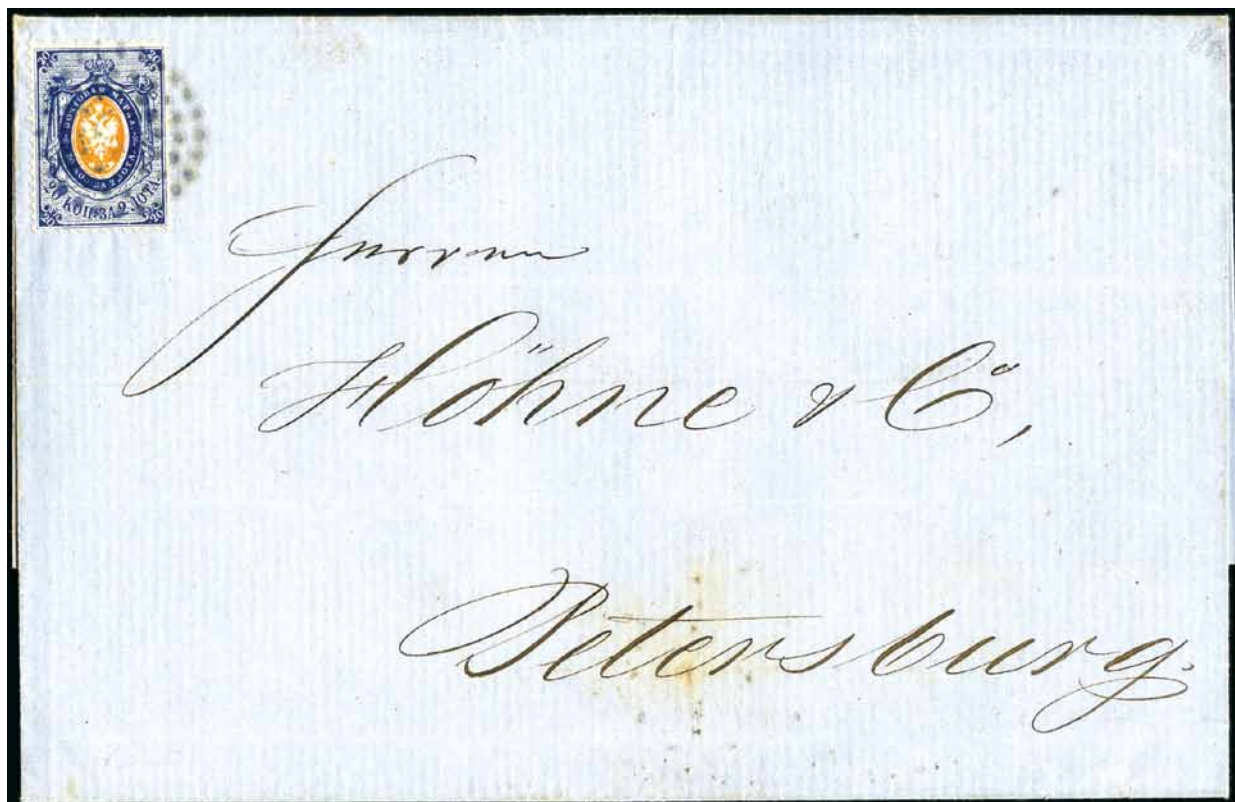 ПОЧТОВАЯ МАРКА
20 КОП. ЗА 2 ЛОТА.
Herren
Höhne & Cº,
Petersburg.